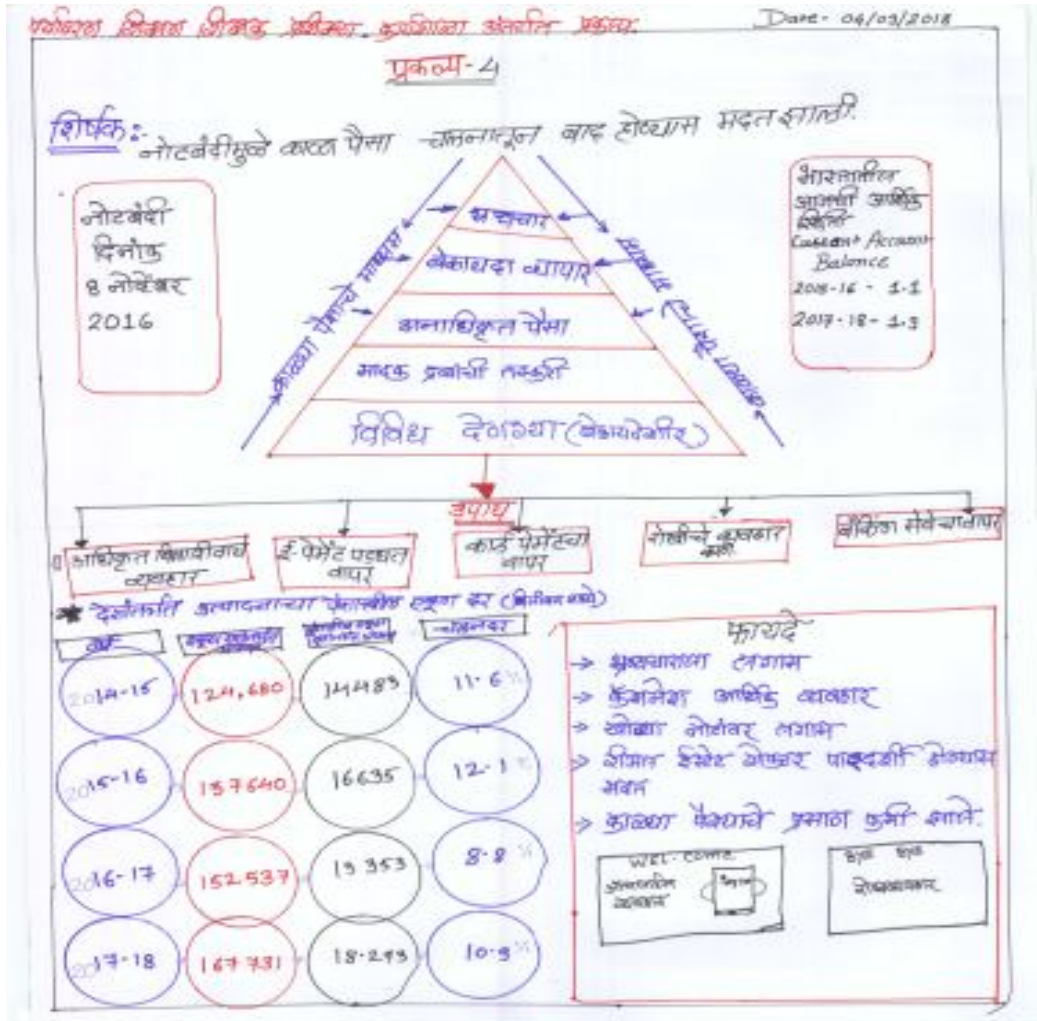 पर्यावरण शिक्षण शिक्षक प्रशिक्षण कार्यशाळा अंतर्गत प्रकल्प.
Date- 04/03/2018
प्रकल्प-4
शिर्षक:- नोटबंदीमुळे काळा पैसा चलनातून बाद होण्यास मदत झाली.
नोटबंदी
दिनांक
8 नोव्हेंबर
2016
भारतातील
आजची आर्थिक
स्थिती
Current Account
Balance
2015-16 - 1.1
2017-18 - 1.3
काळ्या पैशाचे माध्यम
भ्रष्टाचार
बेकायदा व्यापार
अनाधिकृत पैसा
मादक द्रव्यांची तस्करी
विविध देणग्या (बेकायदेशीर)
उपाय
अधिकृत
व्यवहार
ई-पेमेंट पद्धत
वापर
कार्ड पेमेंटचा
वापर
रोखीचे व्यवहार
कमी
बँकिंग सेवेचा वापर
* देशांतर्गत उत्पादनाच्या एकूण दर
वर्ष
चलनदर
2014-15 124,680 14483 11.6%
2015-16 137640 16635 12.1%
2016-17 152537 13353 8.8%
2017-18 167731 18.293 10.9%
फायदे
→ भ्रष्टाचाराला लगाम
→ कॅशलेस आर्थिक व्यवहार
→ खोट्या नोटांवर लगाम
→ रीअल ईस्टेट सेक्टर पारदर्शी होण्यास
मदत
→ काळ्या पैश्याचे प्रमाण कमी झाले.
WEL-COME
व्यवहार